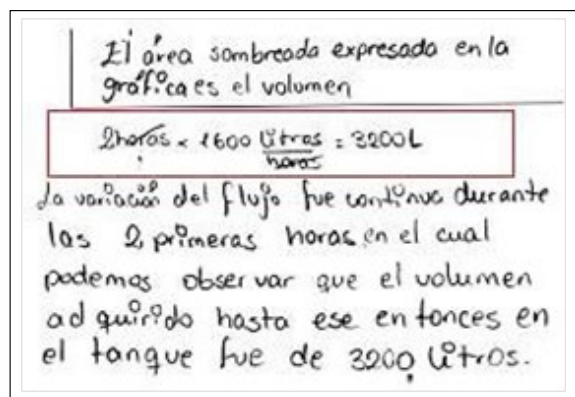 El área sombreada expresada en la
gráfica es el volumen
2horas × 1600 litros/horas = 3200L
La variación del flujo fue continua durante
las 2 primeras horas en el cual
podemos observar que el volumen
adquirido hasta ese entonces en
el tanque fue de 3200 litros.